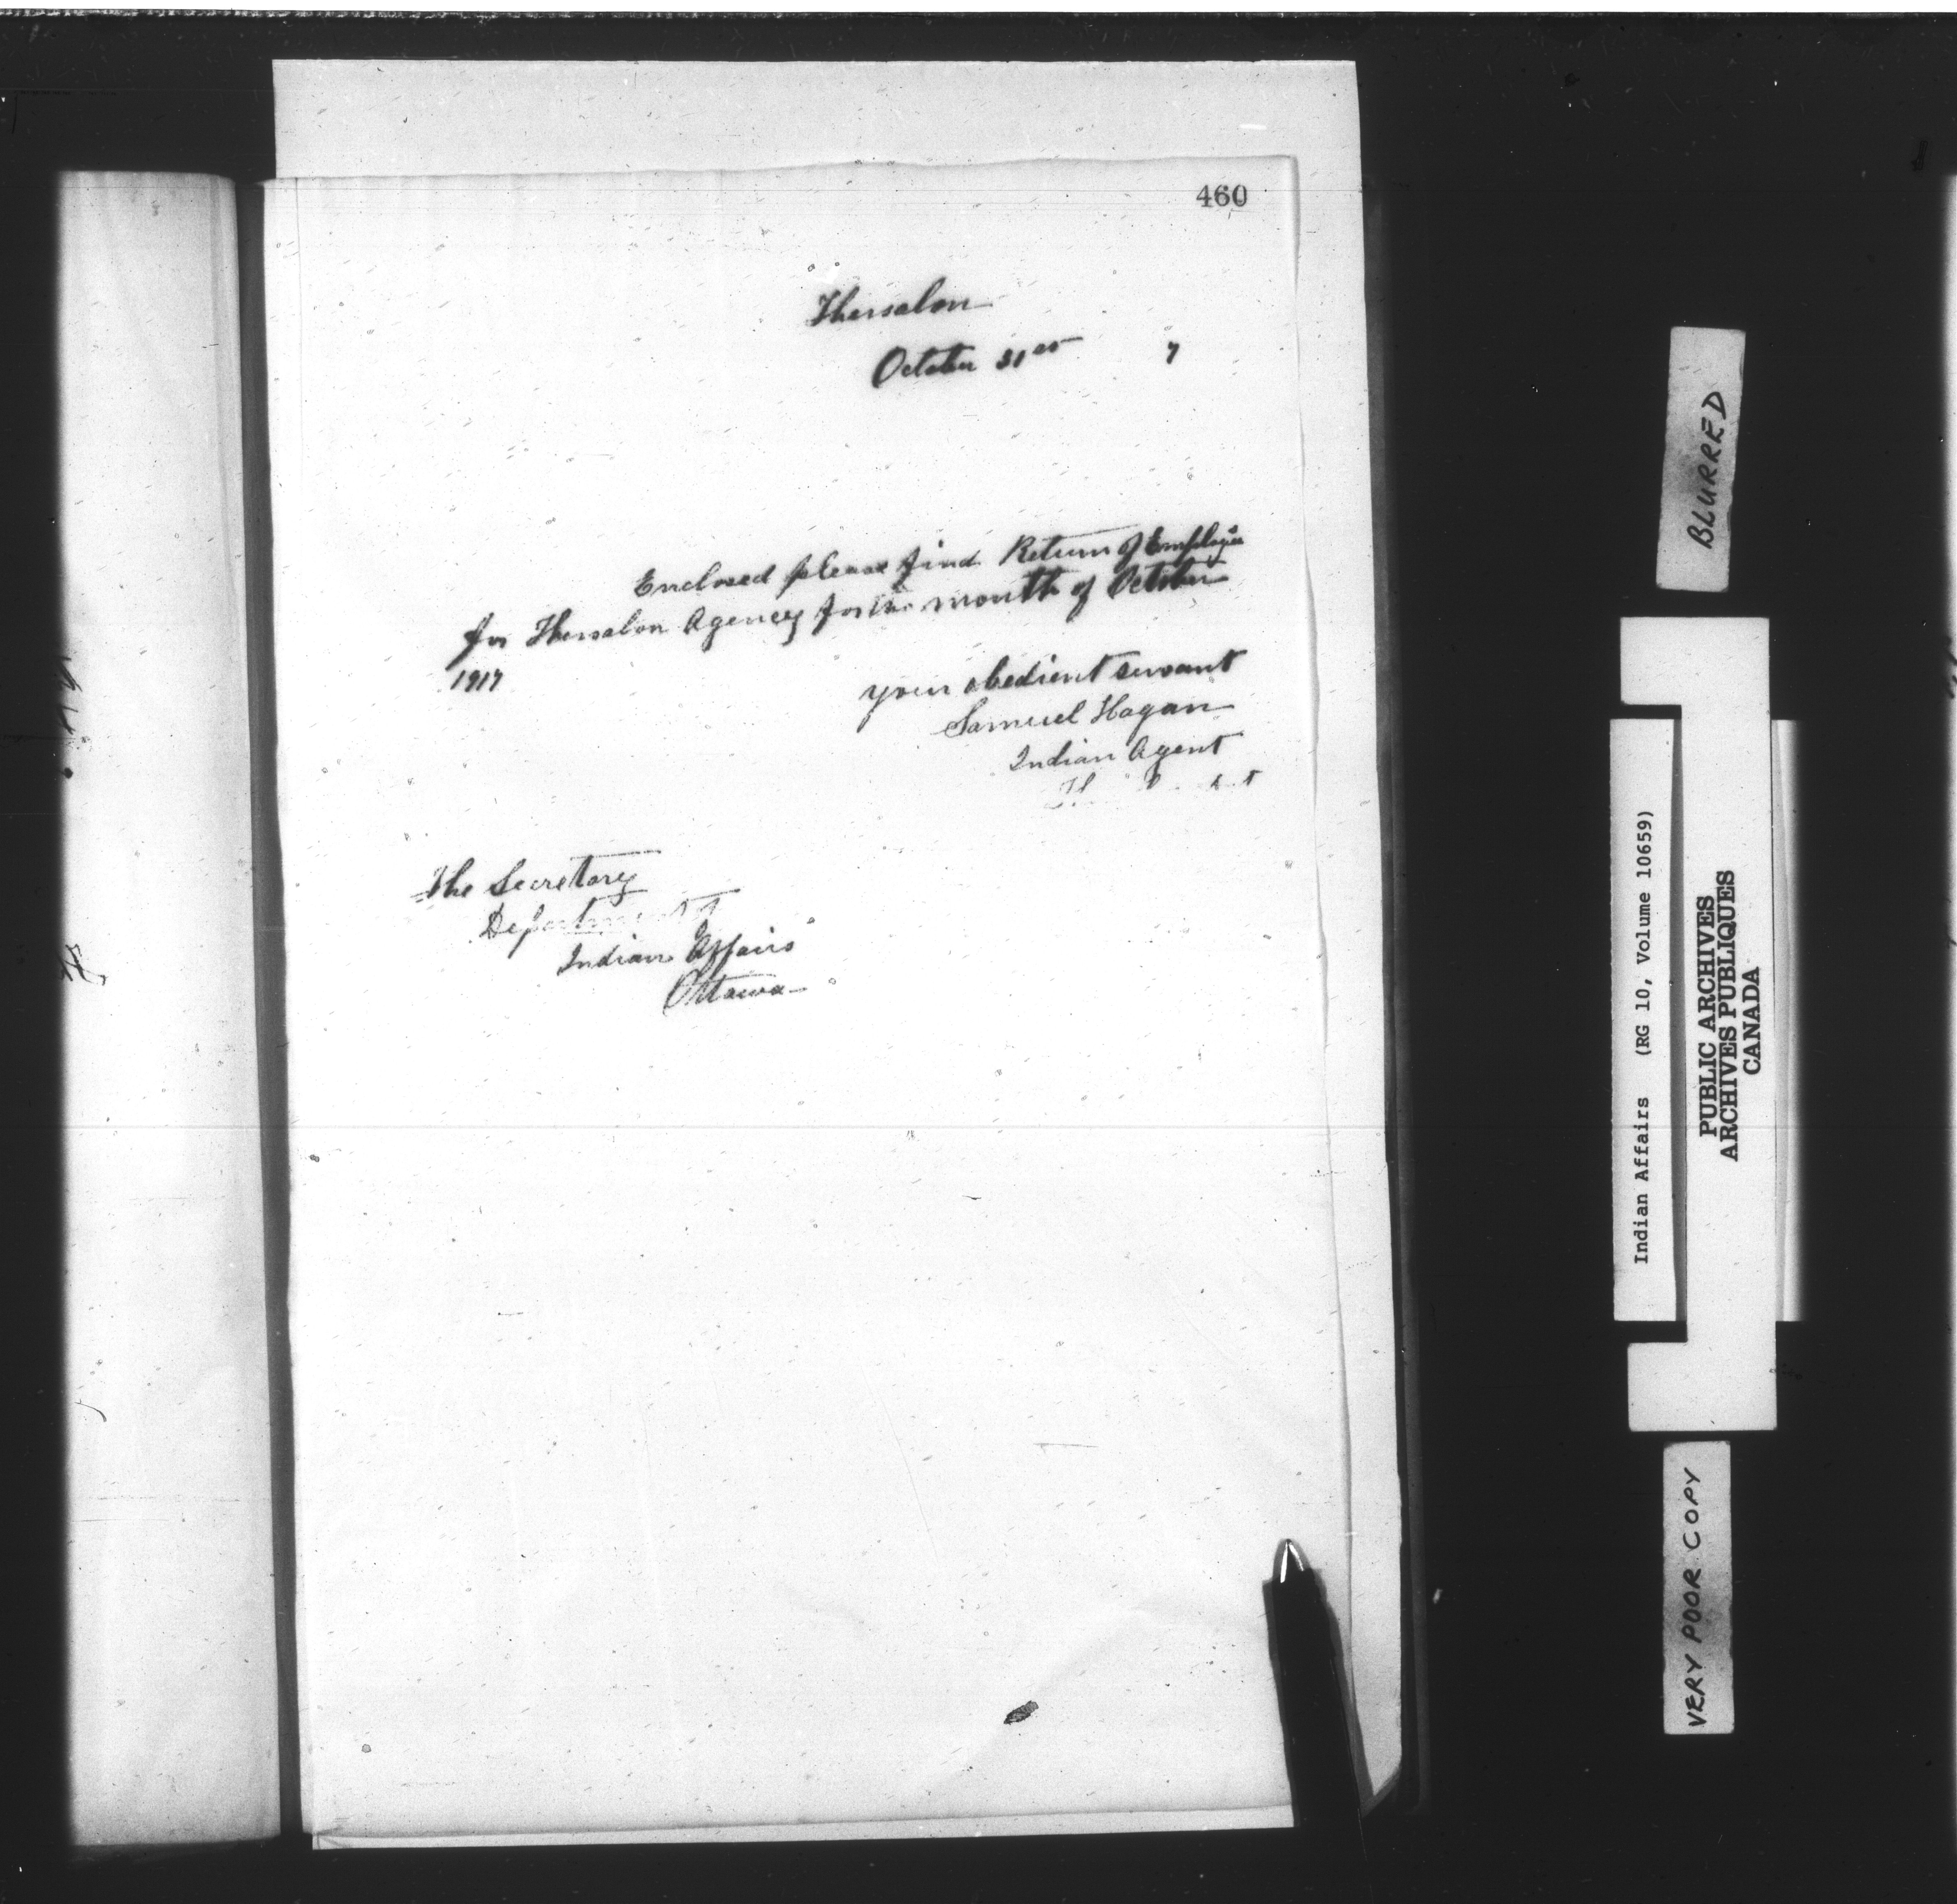 460
Thessalon
October 31st 7
Enclosed please find Return of Employees
for Thessalon Agency for the month of October
1917
your obedient servant
Samuel Hagan
Indian Agent
The Secretary
Department of
Indian Affairs
Ottawa
BLURRED
Indian Affairs (RG 10, Volume 10659)
PUBLIC ARCHIVES
ARCHIVES PUBLIQUES
CANADA
VERY POOR COPY